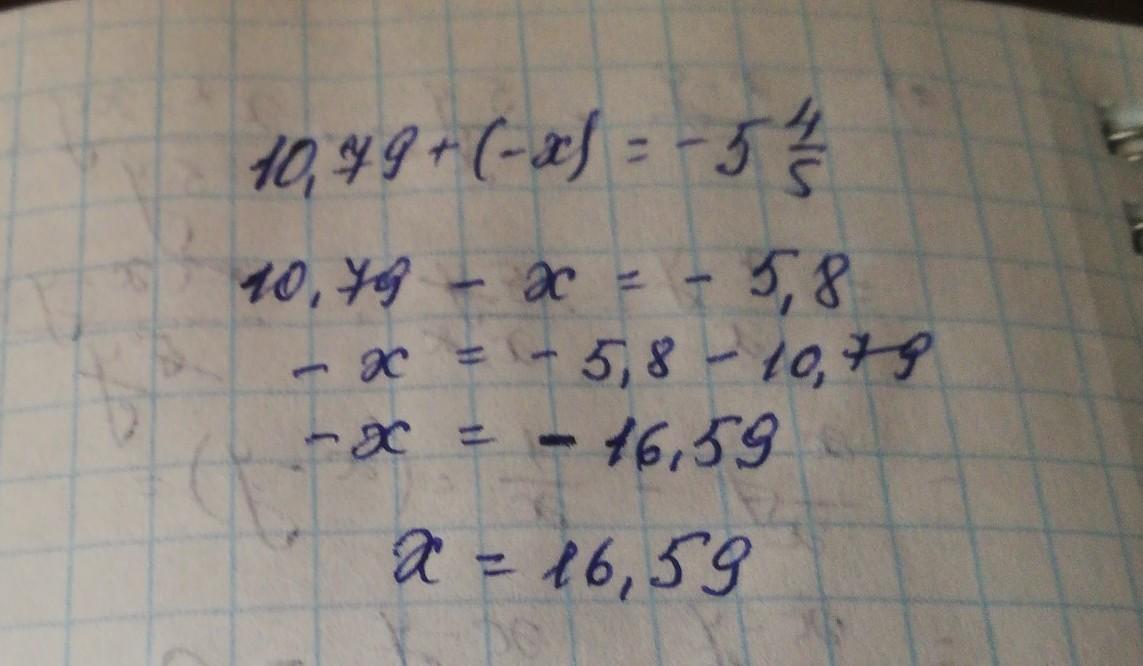 10,79 + (-x) = -5 4/5
10,79 - x = - 5,8
- x = - 5,8 - 10,79
- x = - 16,59
x = 16,59